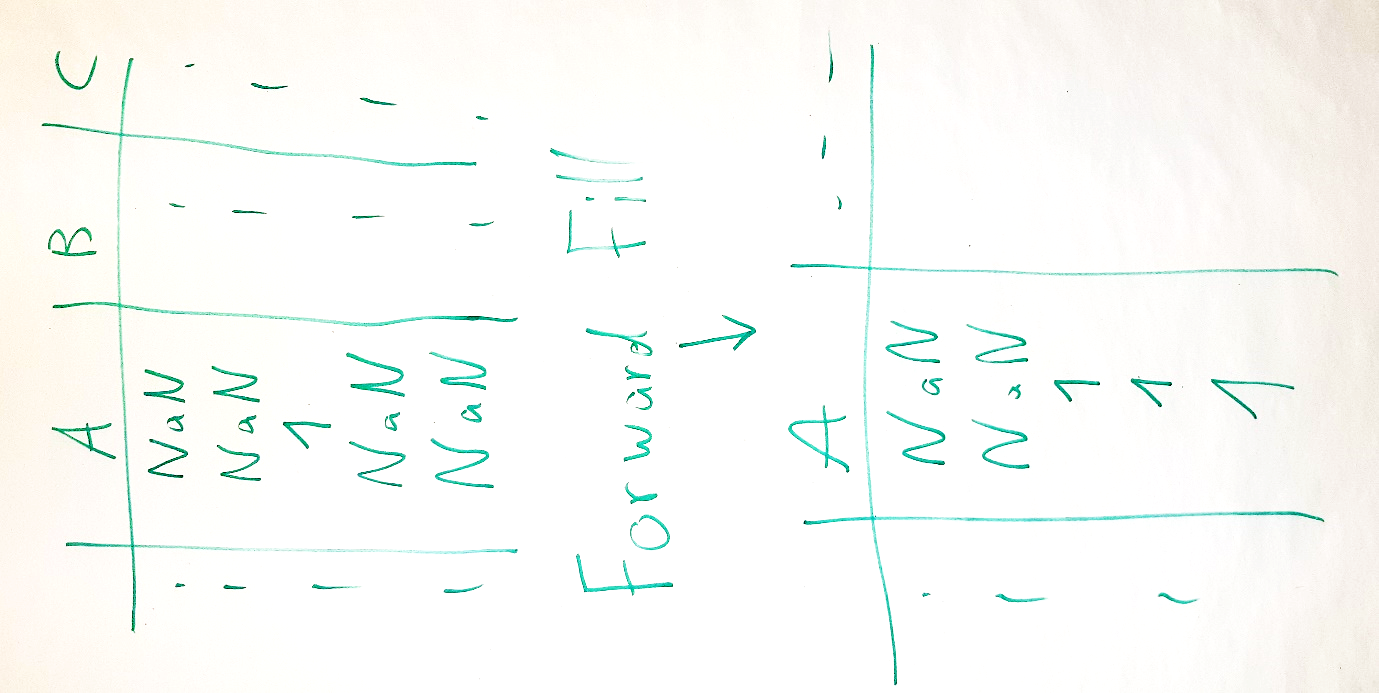 A | B | C
NaN
NaN
1
NaN
NaN
Forward Fill
→
A
NaN
NaN
1
1
1